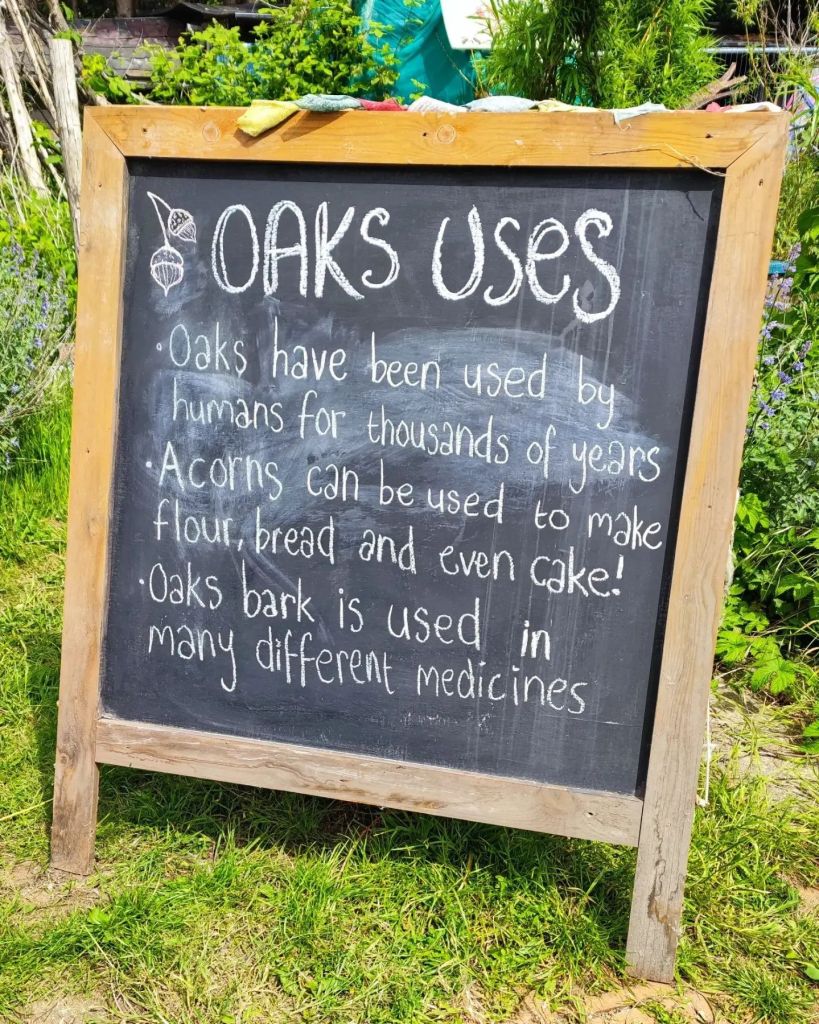 OAKS USES
·Oaks have been used by
humans for thousands of years
·Acorns can be used to make
flour, bread and even cake!
·Oaks bark is used in
many different medicines